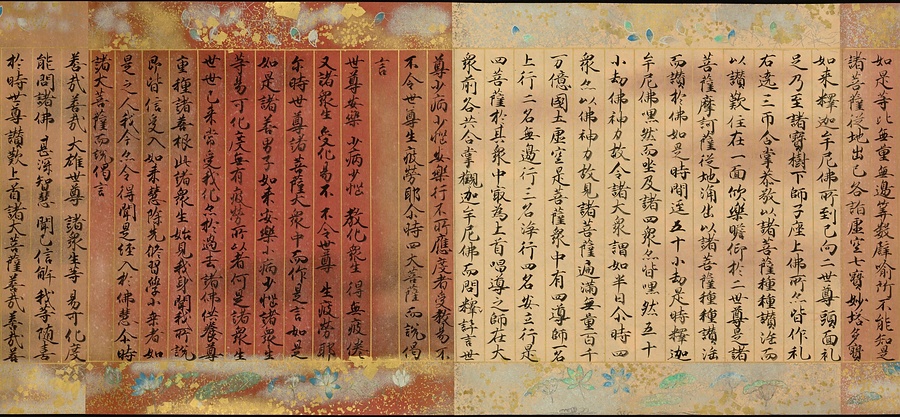 如是等比無量無邊算數譬喻所不能知是
諸菩薩從地出已各詣虛空七寶妙塔多寶
如來釋迦牟尼佛所到已向二世尊頭面礼
足乃至諸寶樹下師子座上佛所亦皆作礼
右遶三帀合掌恭敬以諸菩薩種種讚法而
以讚歎住在一面欣樂瞻仰於二世尊是諸
菩薩摩訶薩從地涌出以諸菩薩種種讚法
而讚於佛如是時間逕五十小劫是時釋迦
牟尼佛嘿然而坐及諸四衆亦皆嘿然五十
小劫佛神力故令諸大衆謂如半日尒時四
衆亦以佛神力故見諸菩薩遍滿無量百千
万億國土虛空是菩薩衆中有四導師名
上行二名無邊行三名淨行四名安立行是
四菩薩於其衆中最為上首唱導之師在大
衆前各共合掌觀迦牟尼佛而問釋訊言世
尊少病少惱安樂行不所應度者受教易不
不令世尊生疲勞耶尒時四大菩薩而說偈
言
世尊安樂 少病少惱 教化衆生 得無疲倦
又諸衆生 受化易不 不令世尊 生疲勞耶
尒時世尊諸菩薩大衆中而作是言如是
如是諸善男子如來安樂少病少惱諸衆生
等易可化度無有疲勞所以者何是諸衆生
世世已來常受我化亦於過去諸佛供養尊
重種諸善根此諸衆生始見我身聞我所說
即皆信受入如來慧除先修習學小乘者如
是之人我今亦令得聞是經入於佛慧尒時
諸大菩薩而說偈言
善哉善哉 大雄世尊 諸衆生等 易可化度
能問諸佛 甚深智慧 聞已信解 我等隨喜
於時世尊讚歎上首諸大菩薩善哉善哉善